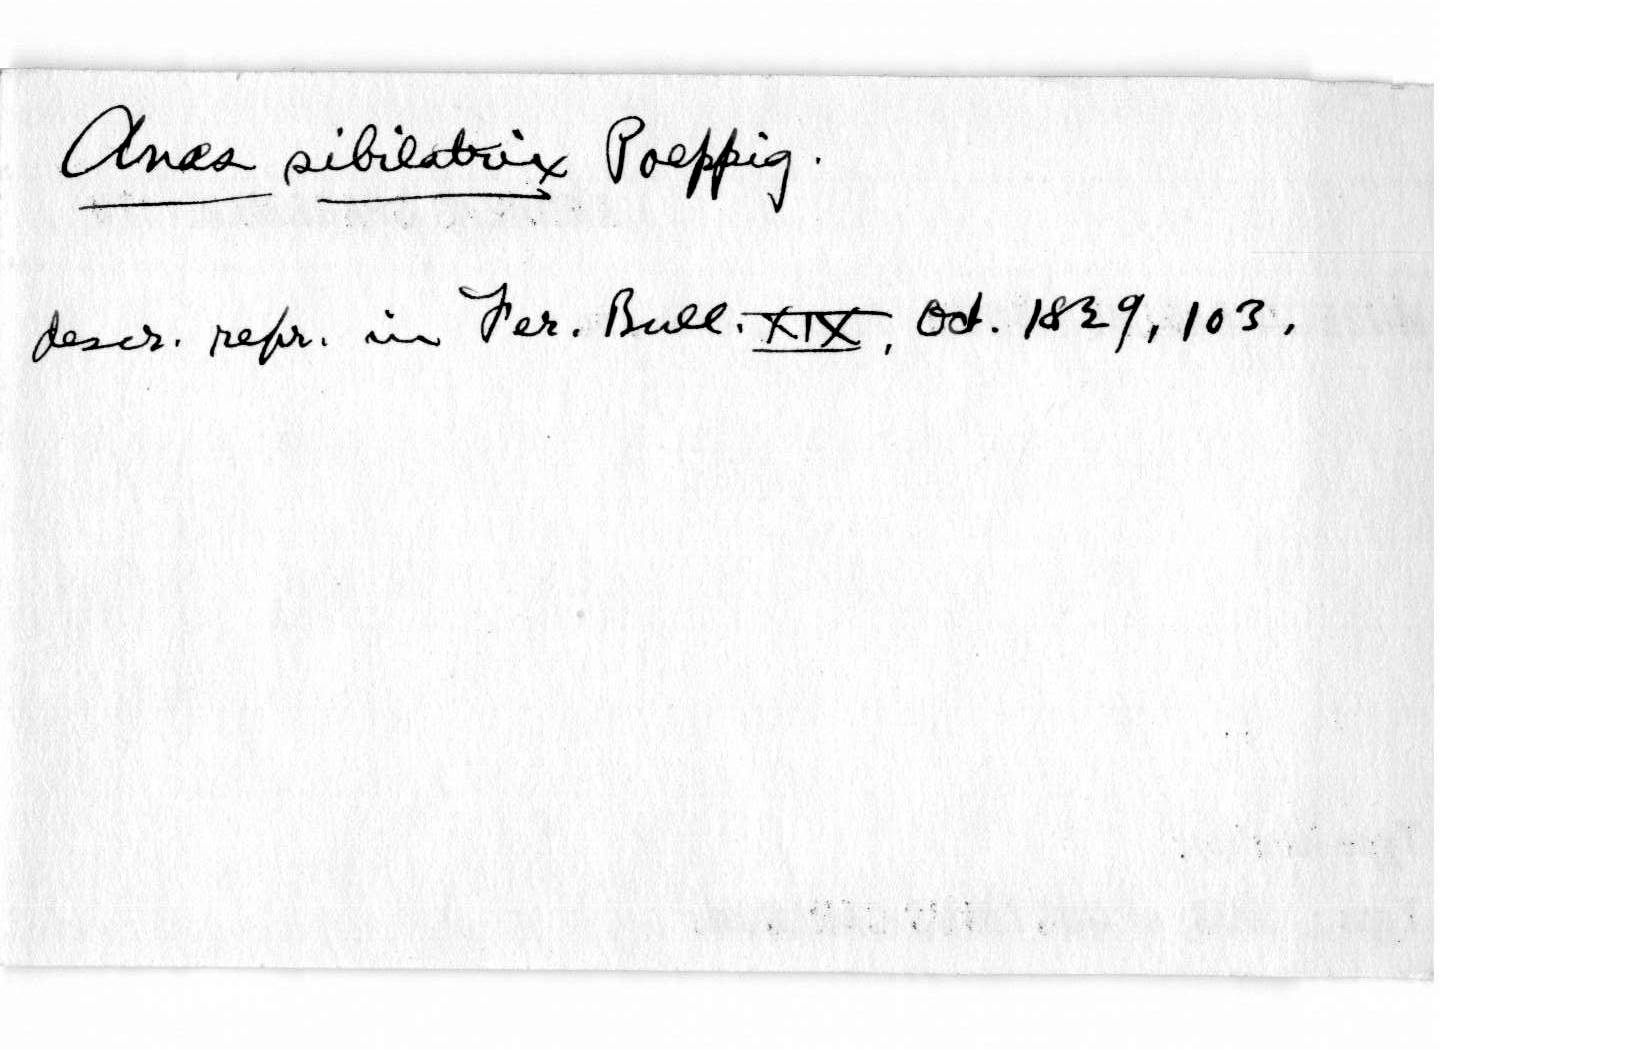 Anas sibilatrix Poeppig.
descr. repr. in Fer. Bull. XIX, Oct. 1829, 103.